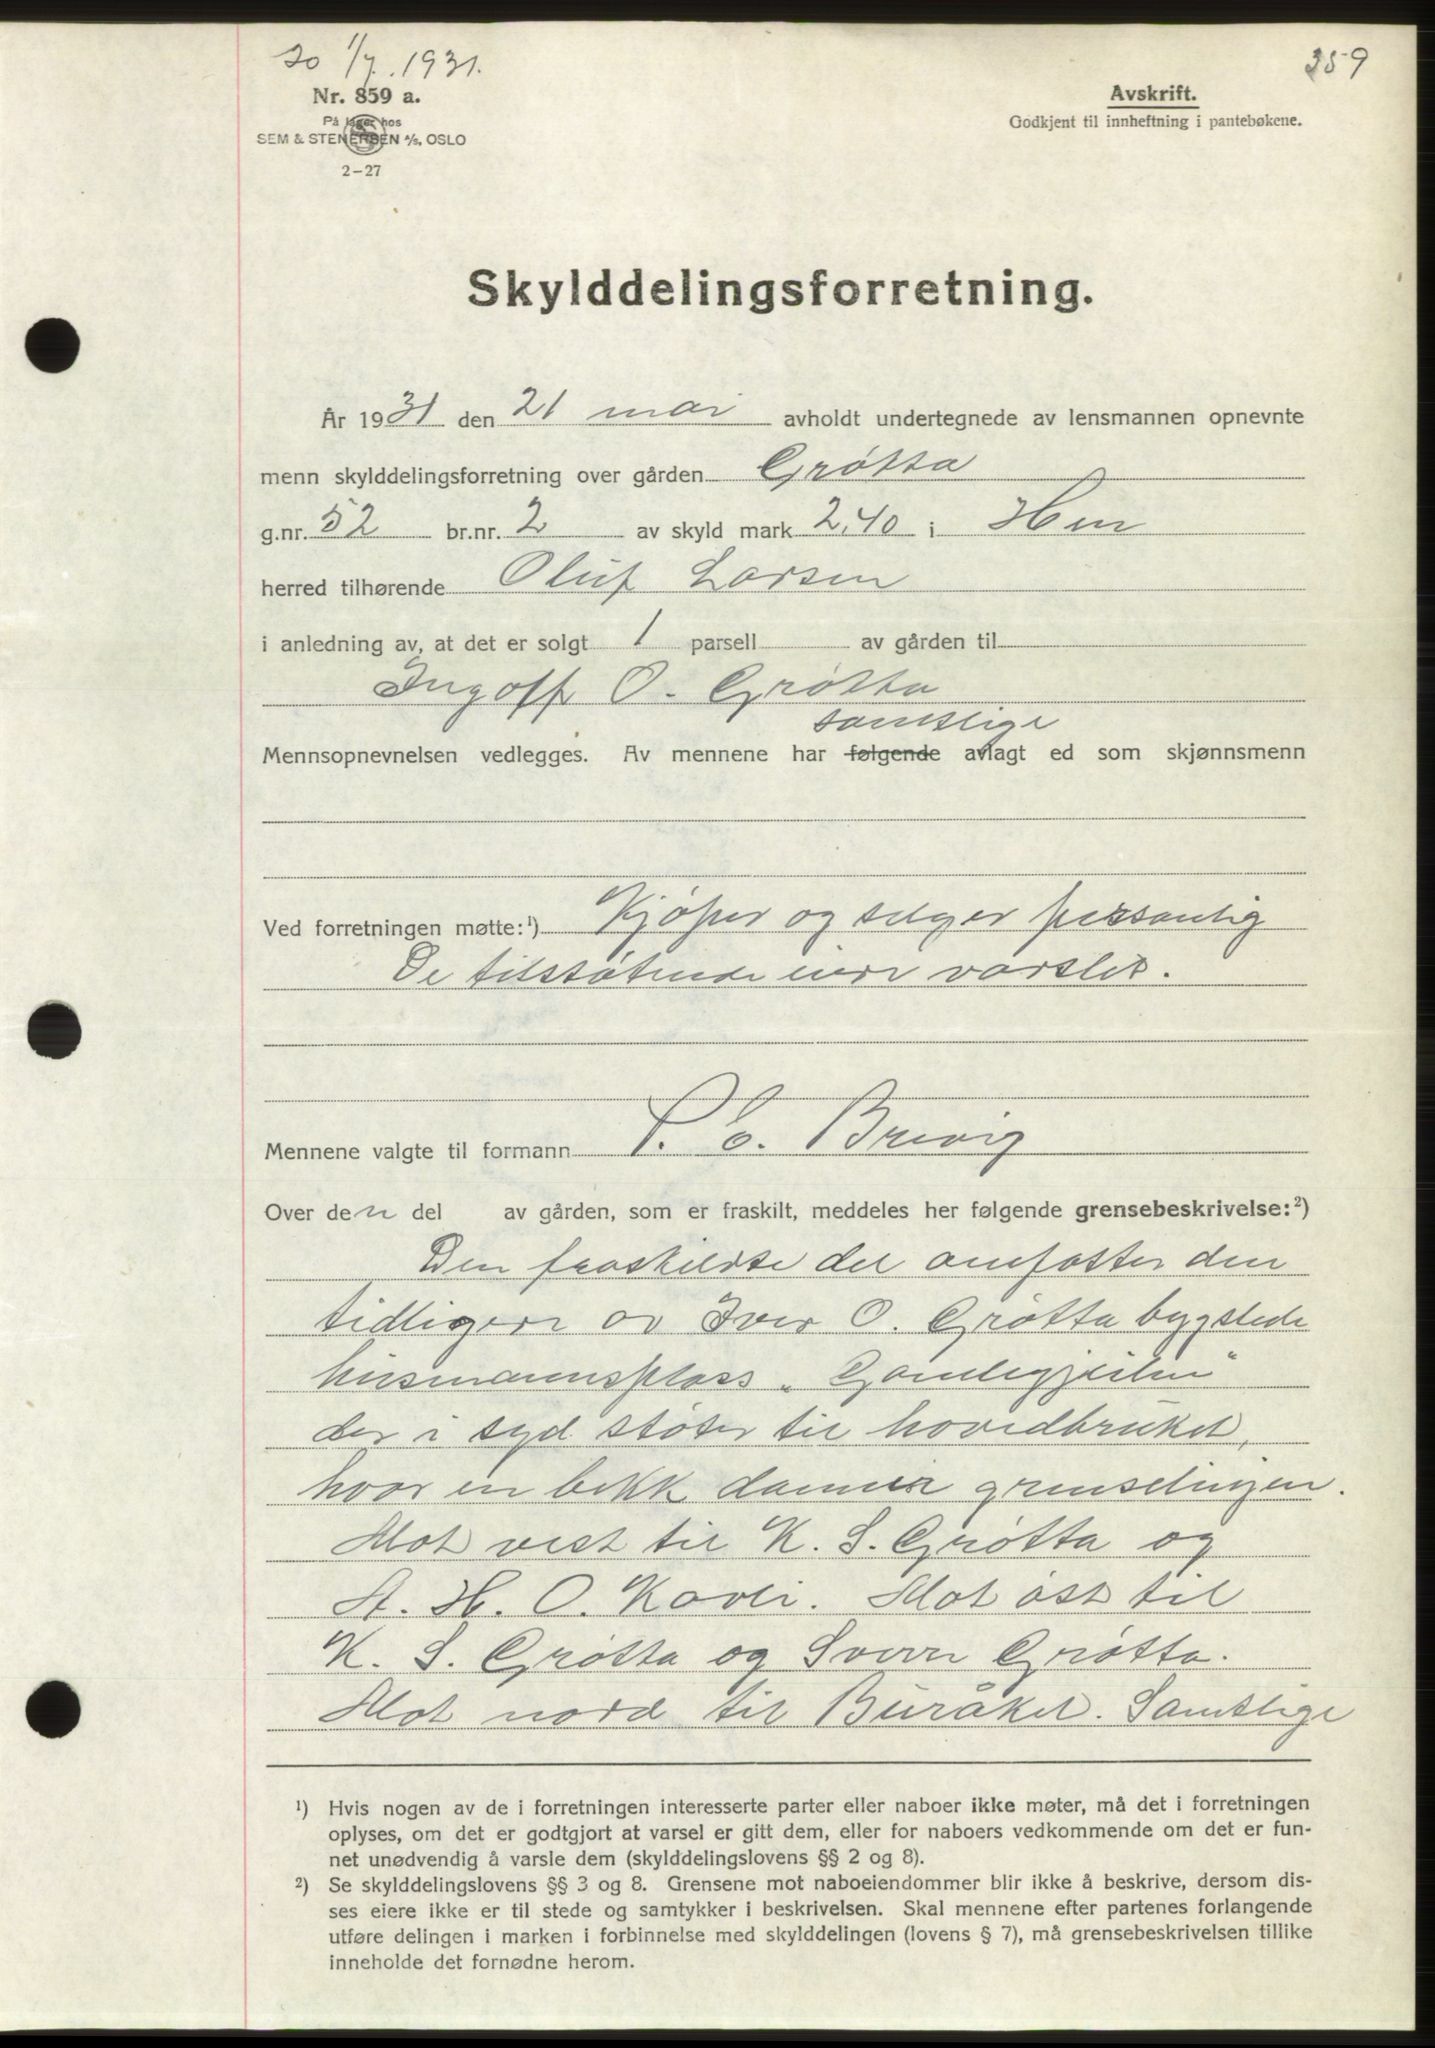 20 1/7. 1931.
359
Nr. 859 a.
På lager hos
SEM & STENERSEN A/S, OSLO
2-27
Avskrift.
Godkjent til innheftning i pantebøkene.
Skylddelingsforretning.
År 1931 den 21 mai avholdt undertegnede av lensmannen opnevnte
menn skylddelingsforretning over gården Grøtta
g.nr. 52 br.nr. 2 av skyld mark 2,40 i Hen
herred tilhørende Oluf Larsen
i anledning av, at det er solgt 1 parsell av gården til
Ingolf O. Grøtta
samtlige
Mennsopnevnelsen vedlegges. Av mennene har følgende avlagt ed som skjønnsmenn
Ved forretningen møtte:¹) Kjøper og selger personlig
De tilstøtende eiere varslet.
Mennene valgte til formann P. E. Brevig
Over den del av gården, som er fraskilt, meddeles her følgende grensebeskrivelse:²)
Den fraskilte del omfatter den
tidligere av Iver O. Grøtta bygslede
husmannsplass „Gamlegjeilen"
der i syd støter til hovedbruket,
hvor en bekk danner grenselinjen.
Mot vest til K. S. Grøtta og
A. H. O. Kavli. Mot øst til
K. S. Grøtta og Sverre Grøtta.
Mot nord til Buråket. Samtlige
¹) Hvis nogen av de i forretningen interesserte parter eller naboer ikke møter, må det i forretningen
oplyses, om det er godtgjort at varsel er gitt dem, eller for naboers vedkommende om det er fun-
net unødvendig å varsle dem (skylddelingslovens §§ 2 og 8).
²) Se skylddelingslovens §§ 3 og 8. Grensene mot naboeiendommer blir ikke å beskrive, dersom dis-
ses eiere ikke er til stede og samtykker i beskrivelsen. Skal mennene efter partenes forlangende
utføre delingen i marken i forbinnelse med skylddelingen (lovens § 7), må grensebeskrivelsen tillike
inneholde det fornødne herom.